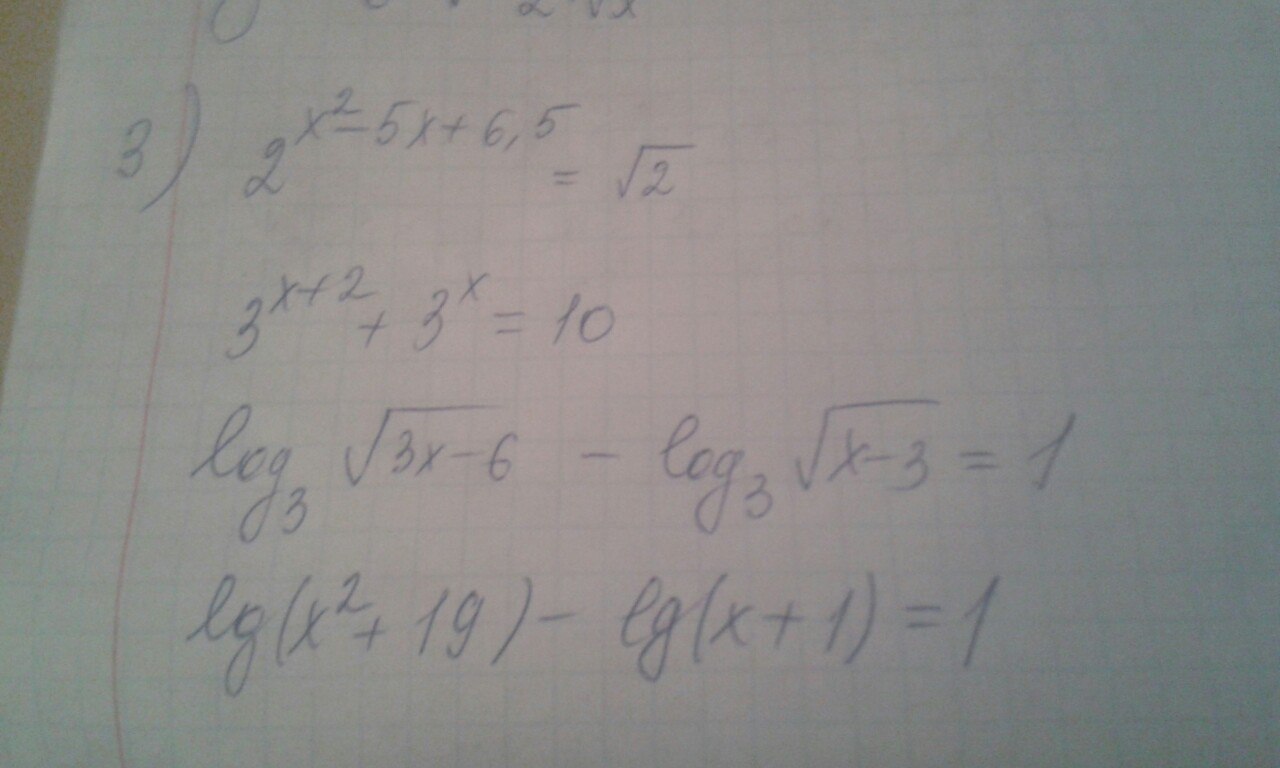 2√x
3) 2^(x²-5x+6,5) = √2
3^(x+2) + 3^x = 10
log₃ √(3x-6) - log₃ √(x-3) = 1
lg(x²+19) - lg(x+1) = 1